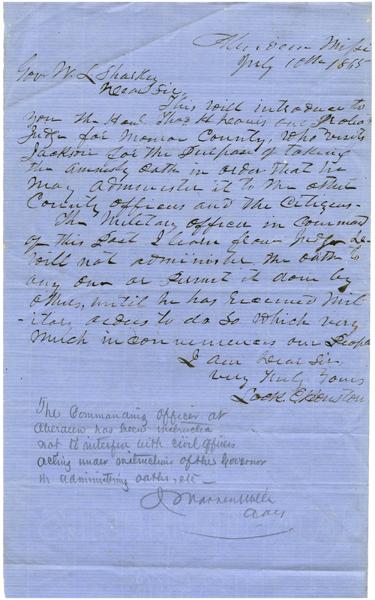 Aberdeen Missi
July 10th 1865
Gov W. L Sharkey
Dear Sir
This will introduce to
you the Hon Thos H our Probate
Judge for Monroe County, who visits
Jackson for the purpose of taking
the Amnesty oath in order that he
may administer it to the other
County officers and the Citizens-
The Military officer in Command
of this Post I learn from Judge
will not administer the oath to
any one or permit it done by
others, until he has Received Mil-
-itary orders to do so which very
much inconveniences our people
I am Dear Sir,
very Truly Yours
Lock E Houston
The Commanding Officer at
Aberdeen has been instructed
not to interfere with civil officers
acting under instructions of the Governor
in administering oaths, etc-
J Warren Miller